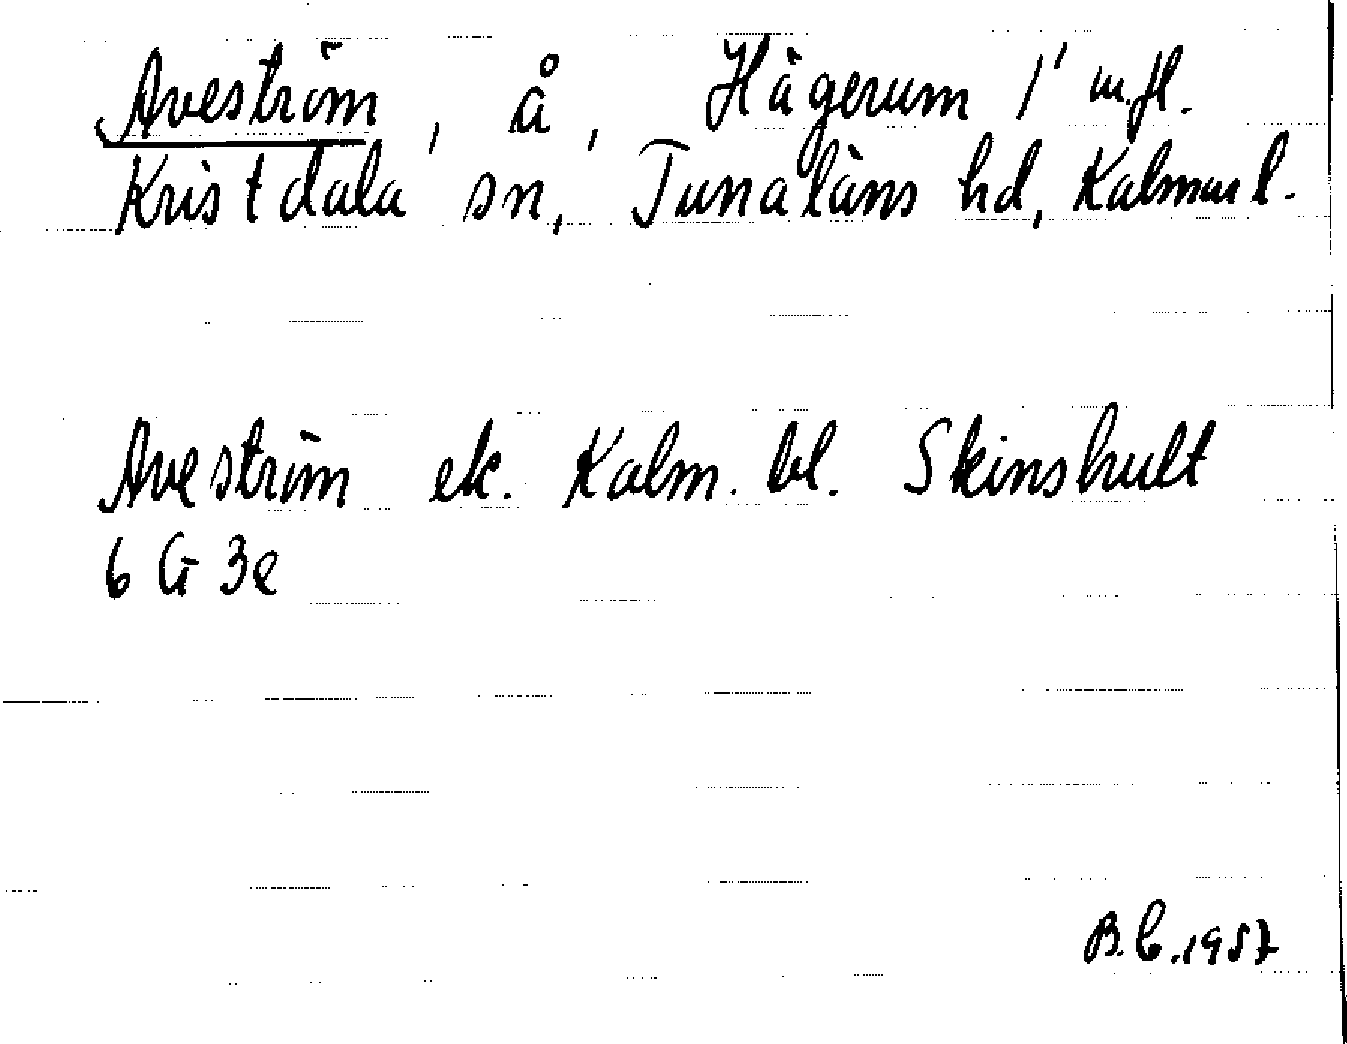 Aveström, å, Hägerum 1' m.fl.
Kristdala sn, Tunaläns hd, Kalmar l.
Aveström ek. Kalm. bl. Skinshult
6 G 3e
B.C. 1987